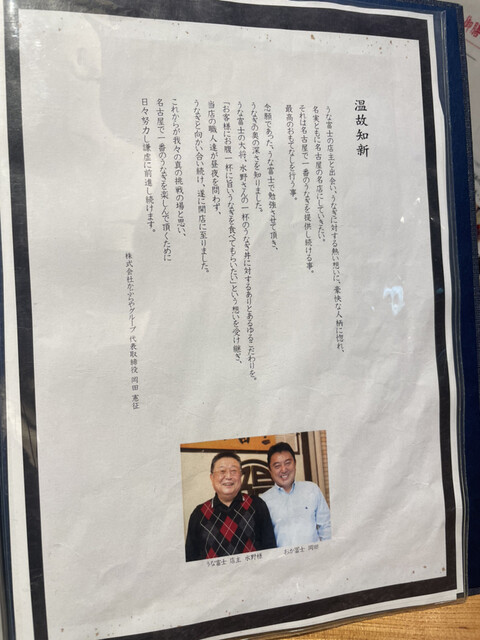 温故知新
うな富士の店主と出会い、うなぎに対する熱い想いに、豪快な人柄に惚れ、
名実ともに名古屋の名店にしていきたい。
それは名古屋で一番のうなぎを提供し続ける事。
最高のおもてなしを行う事。
念願であった、うな富士で勉強させて頂き、
うなぎの奥の深さを知りました。
うな富士の大将、水野さんの一杯のうなぎ丼に対するありとあらゆるこだわりを。
「お客様にお腹一杯に旨いうなぎを食べてもらいたい」という想いを受け継ぎ、
当店の職人達が昼夜を問わず、
うなぎと向かい合い続け、遂に開店に至りました。
これからが我々の真の挑戦の場と思い、
名古屋で一番のうなぎを楽しんで頂くために
日々努力し謙虚に前進し続けます。
株式会社かぶらやグループ 代表取締役 岡田 憲征
うな富士 店主 水野様
わが富士 岡田